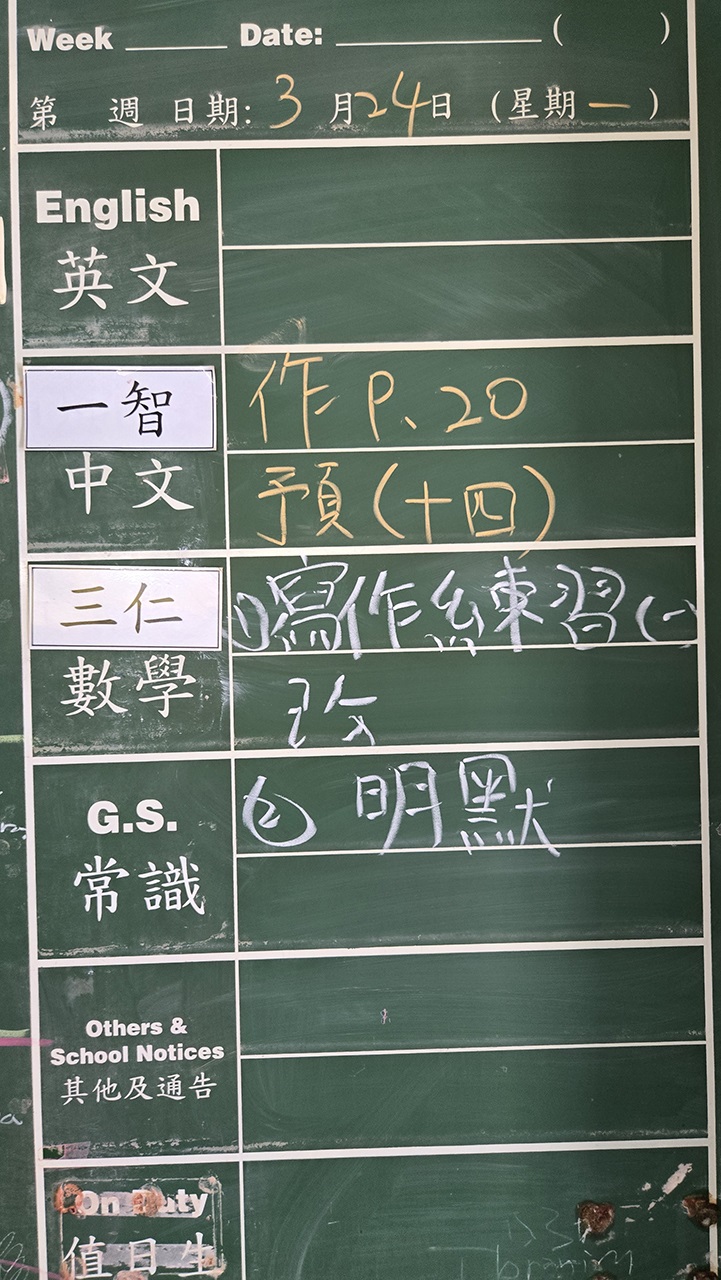 Week ______ Date: ____________ (      )
第 週 日期: 3月24日 (星期一)
English
英文
一智
作 P. 20
中文
預(十四)
三仁
①寫作練習(一)
數學
改
G.S.
② 明默
常識
Others &
School Notices
其他及通告
On Duty
值日生